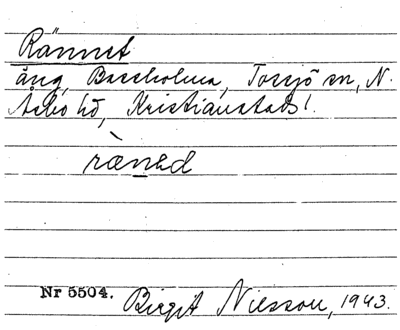 Rännet
äng, Bassholma, Torsjö sn, N.
Åsbo hd, Kristianstads l.
ræ̀nəd
Nr 5504. Birgit Nilsson, 1943.